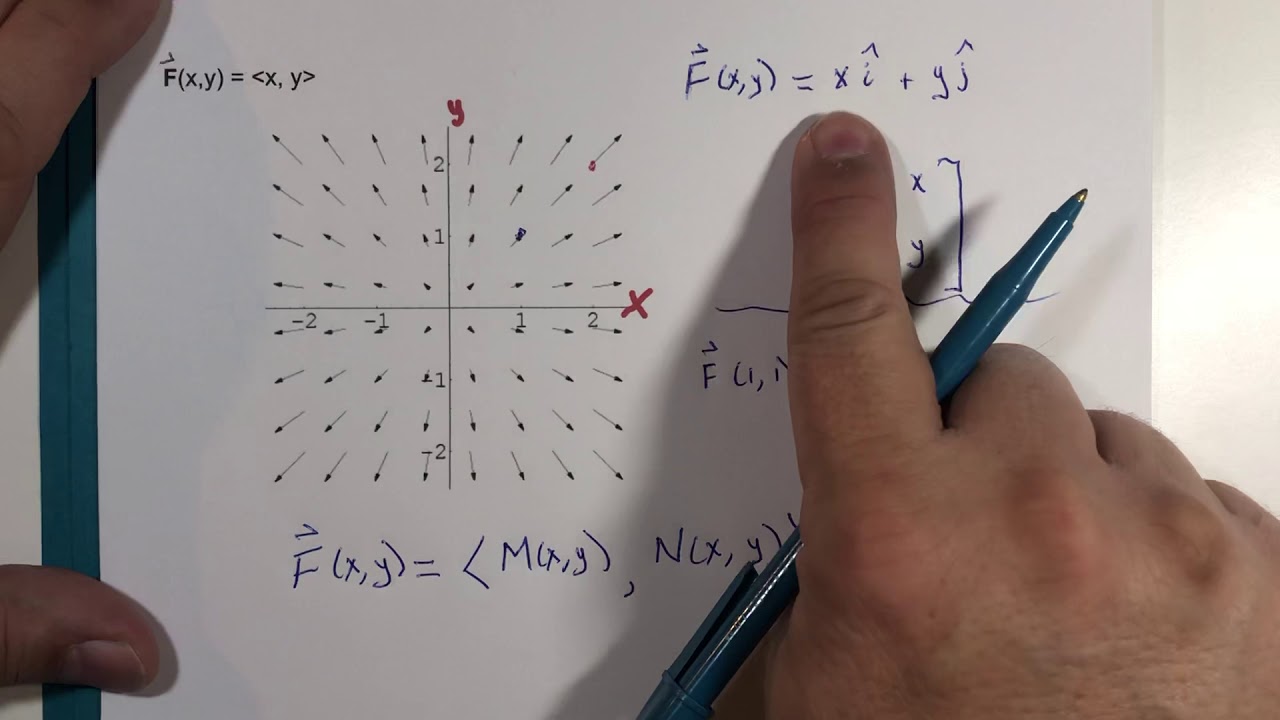 F⃗(x,y) = <x, y>
F⃗(x,y) = x î + y ĵ
y
2
1
-2 -1 1 2 x
-1
-2
x
y
F⃗ (1, 1
F⃗ (x,y) = ⟨ M(x,y) , N(x,y)